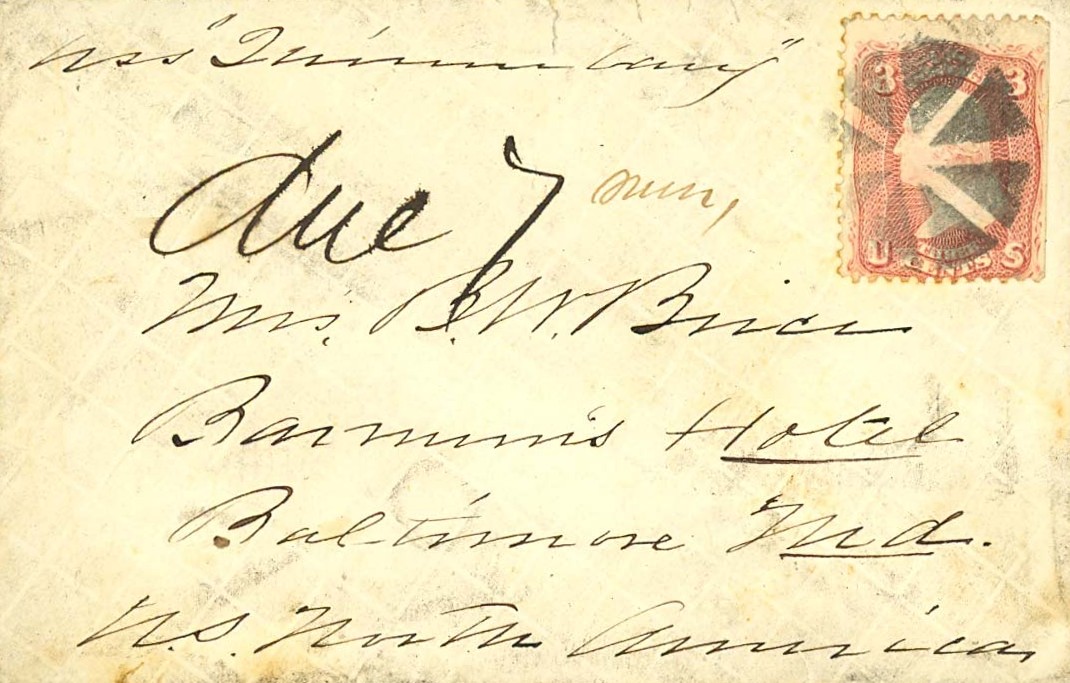 USS "Quinnebaug"
3 3
Due 7
U CENTS S
Mrs. B. W. Brice
Barnum's Hotel
Baltimore Md.
U.S. North America,